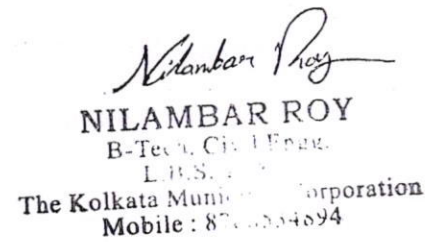 Nilambar Roy
NILAMBAR ROY
B-Tech. Civil Engg.
L.B.S.
The Kolkata Municipal Corporation
Mobile :